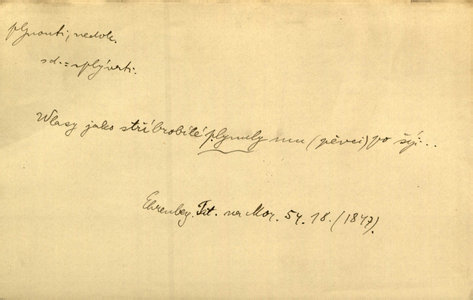 plynouti, nedok.
sd. = splývati.
Wlasy jako stříbrobílé plynuly mu (pěvci) po šíji...
Ehrenberg. Tat. na Mor. 54. 18. (1847).